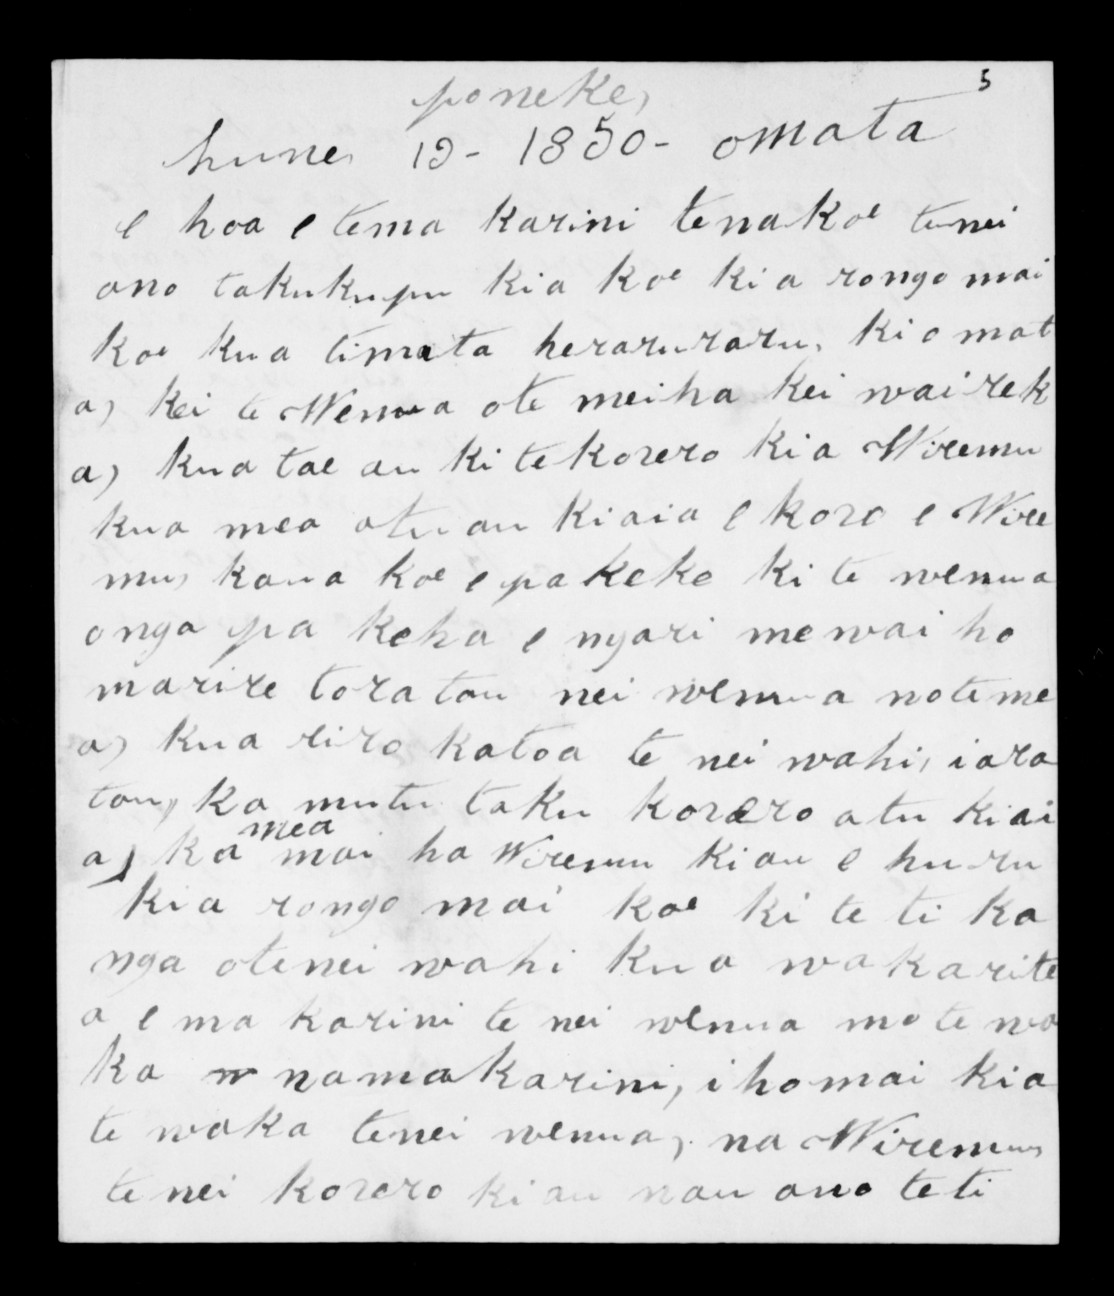 5
poneke,
hune 19- 1850- omata
e hoa e tema karini tenakoe tenei
ano takukupu kia koe kia rongo mai
koe kua timata heraruraru, ki omat
a, kei te Wenua ote meiha kei wairek
a, kua tae au ki te korero kia Wiremu
kua mea atu au kiaia e koro e Wire
mu, kaua koe e pakeke ki te wenua
onga pa keha e ngari me wai ho
marire tora tou nei wenua note me
a, kua riro katoa te nei wahi, iara
tou, ka mutu taku korero atu kiai
a, ka mea mai ha Wiremu kiau e huru
kia rongo mai koe ki te ti ka
nga otenei wahi kua wakarite
a e ma karini te nei wenua mo te wa
ka nama karini, i homai kia
te waka tenei wenua, na Wiremu,
te nei korero ki au nau ano te ti